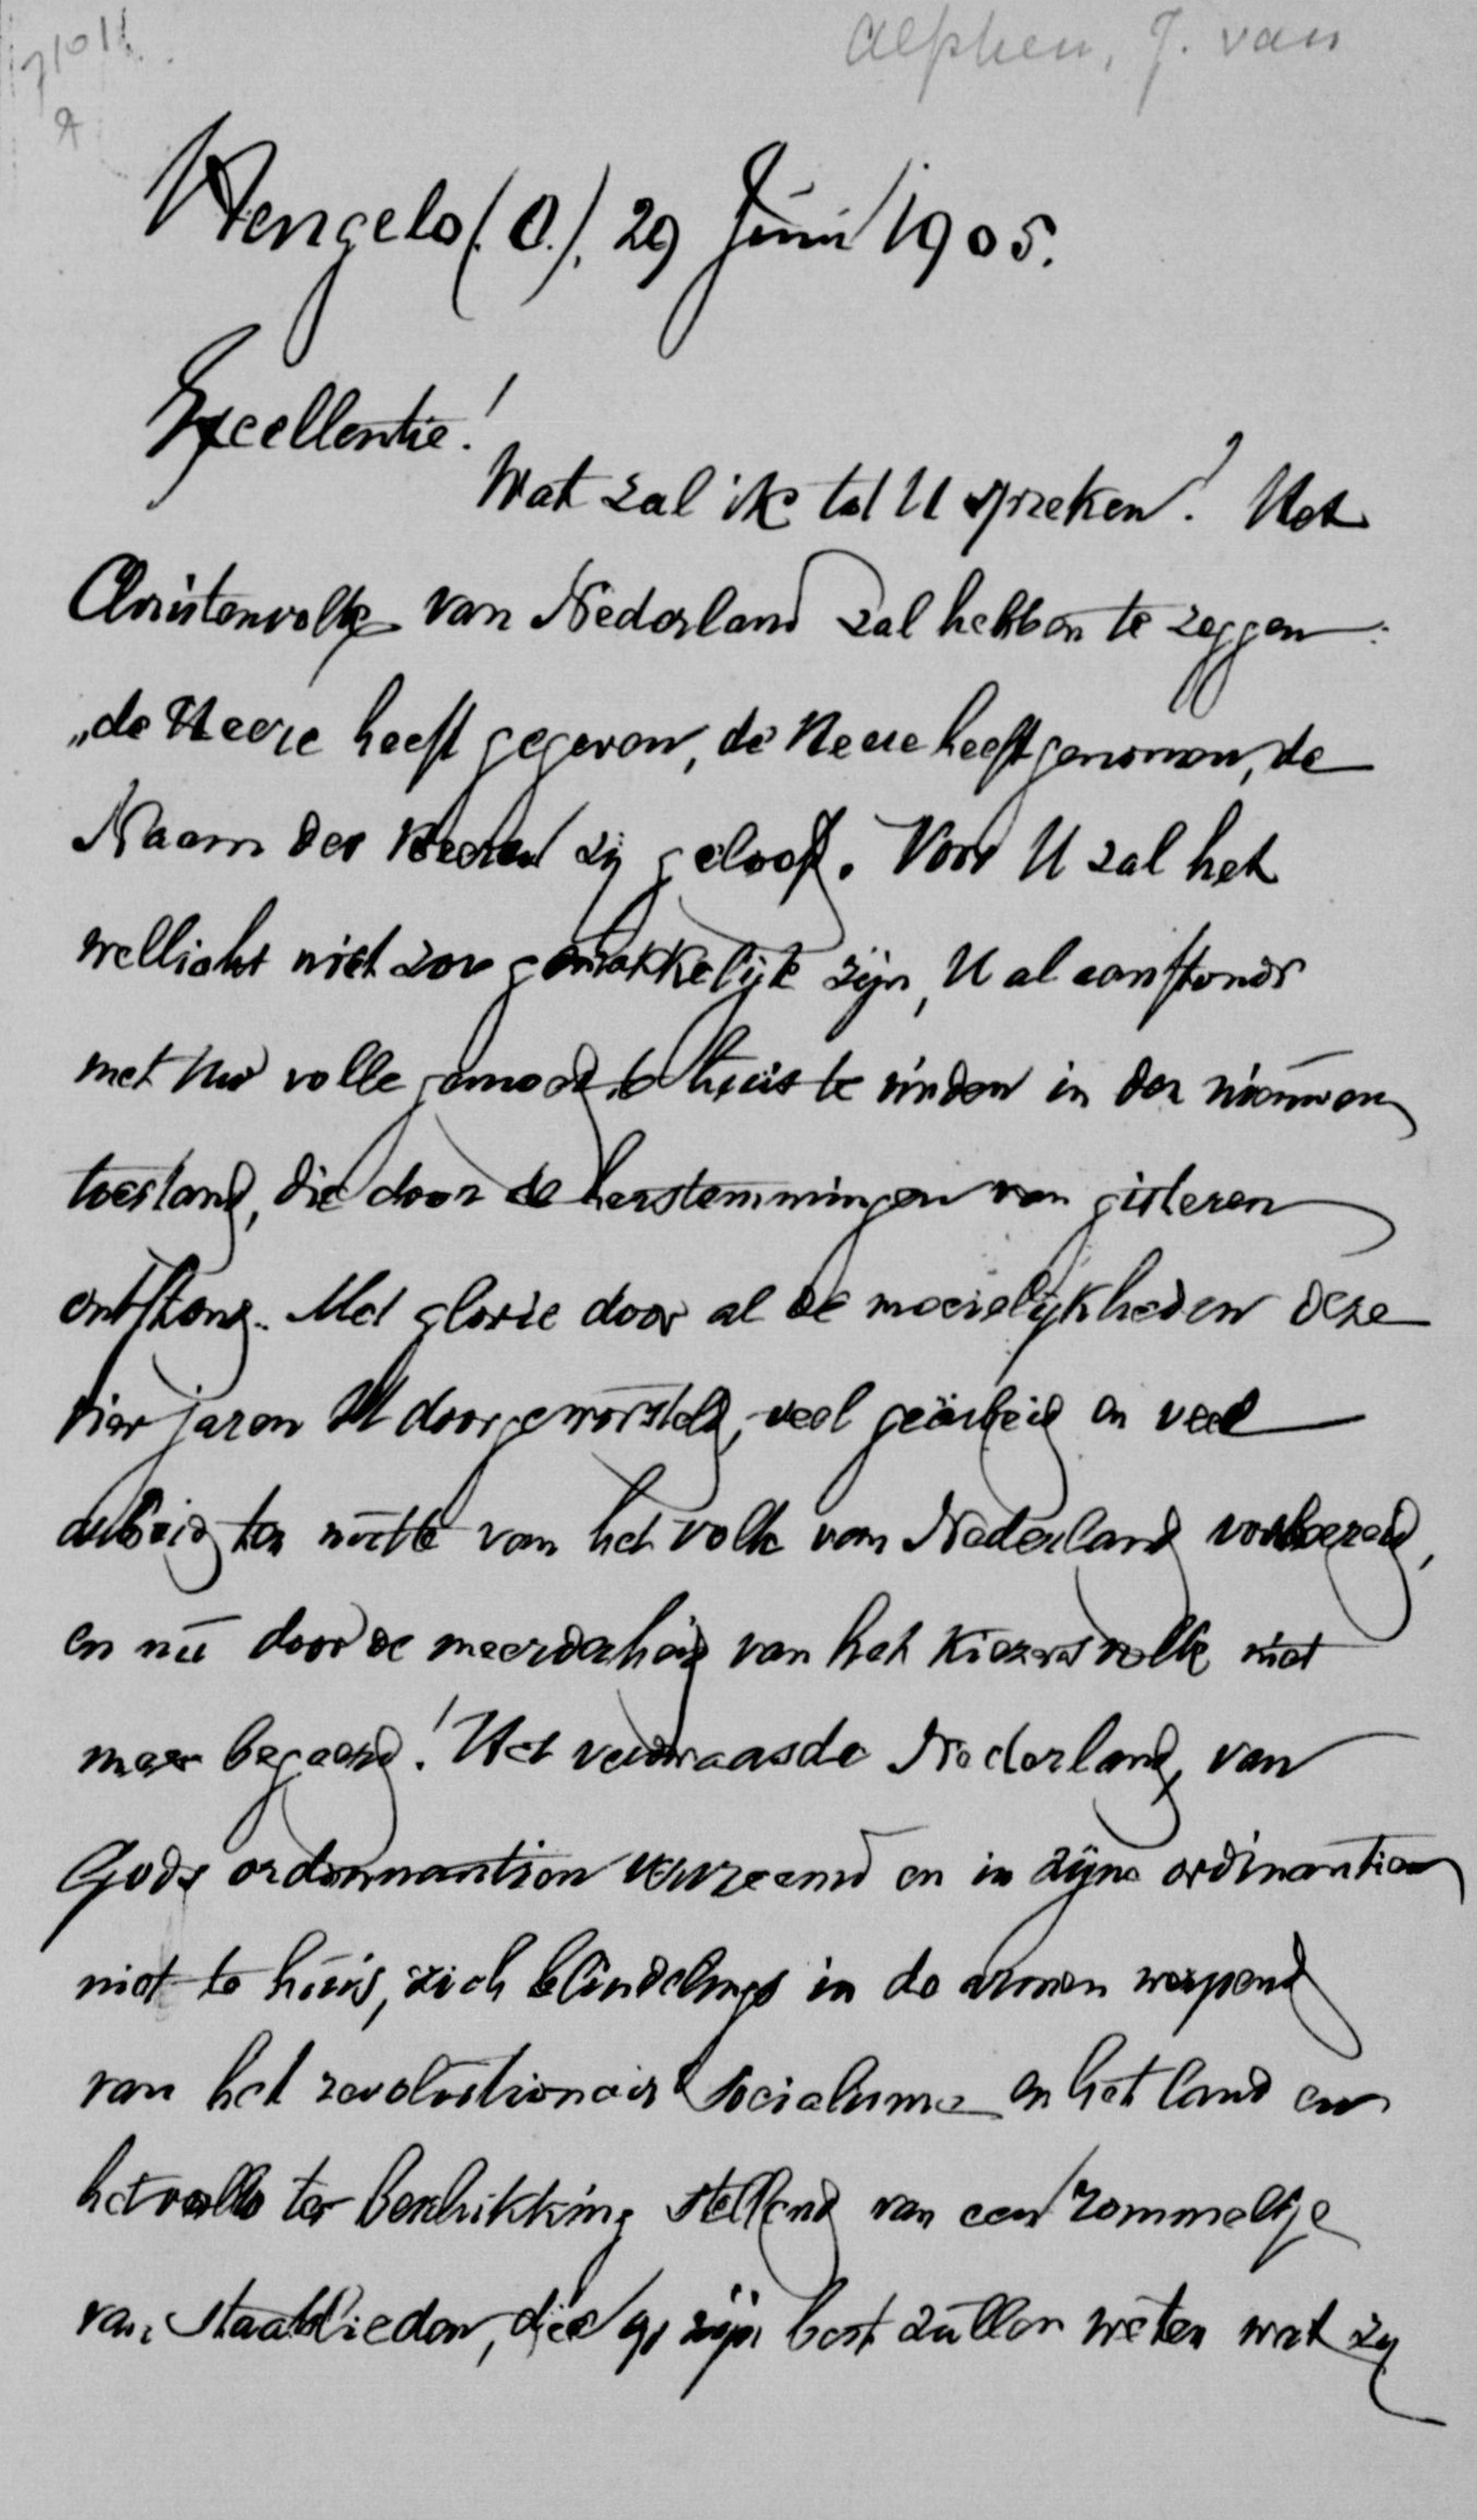 Alphen, J. van
Hengelo (O.), 29 Juni 1905.
Excellentie!
Wat zal ik tot U spreken? Het
Christenvolk van Nederland zal hebben te zeggen:
„de Heere heeft gegeven, de Heere heeft genomen, de
Naam des Heeren zij geloofd. Voor U zal het
wellicht niet zoo gemakkelijk zijn, U al aanstonds
met Uw volle gemoed te huis te vinden in den nieuwen
toestand, die door de herstemmingen van gisteren
ontstond. Met glorie door al de moeielijkheden deze
vier jaren U doorgeworsteld, veel gearbeid en veel
arbeid ten nutte van het volk van Nederland voorbereid,
en nu door de meerderheid van het Kiezersvolk niet
meer begeerd! Het verdwaasde Nederland, van
Gods ordonnantien vervreemd en in zijne ordinantien
niet te huis, zich blindelings in de armen werpend
van het revolutionair Socialisme en het land en
het volk ter beschikking stellend van een rommeltje
van Staatslieden, die op zijn best zullen weten wat zij